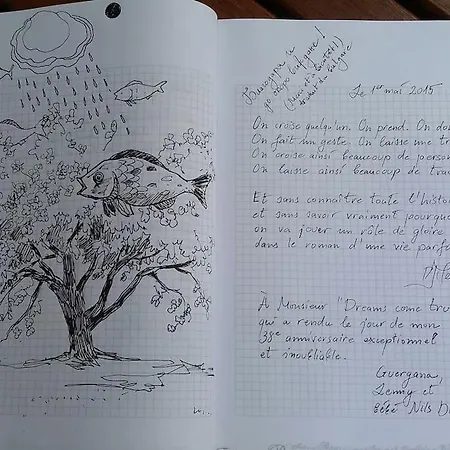 Le 1er mai 2015
On croise quelqu'un. On prend. On do
On fait un geste. On laisse une tr
On croise ainsi beaucoup de person
On laisse ainsi beaucoup de trac
Et sans connaître toute l'histo
et sans savoir vraiment pourqu
on va jouer un rôle de gloire
dans le roman d'une vie parf
À Monsieur "Dreams come tru
qui a rendu le jour de mon
38e anniversaire exceptionnel
et inoubliable.
Guergana,
Jenny et
bébé Nils D